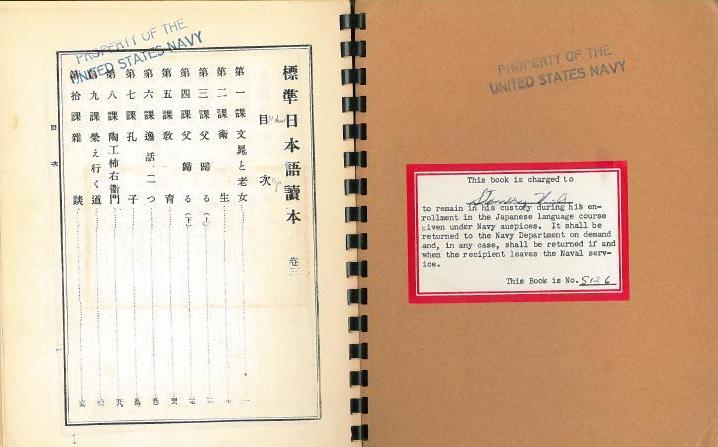 PROPERTY OF THE
UNITED STATES NAVY
標準日本語讀本 卷三
目次
第一課 文晁と老女
第二課 衛生
第三課 父歸る(上)
第四課 父歸る(下)
第五課 敎育
第六課 逸話二つ
第七課 孔子
第八課 陶工柿右衞門
第九課 榮え行く道
第拾課 雜談
目次
PROPERTY OF THE
UNITED STATES NAVY
This book is charged to
to remain in his custody during his en-
rollment in the Japanese language course
given under Navy auspices. It shall be
returned to the Navy Department on demand
and, in any case, shall be returned if and
when the recipient leaves the Naval serv-
ice.
This Book is No. S126